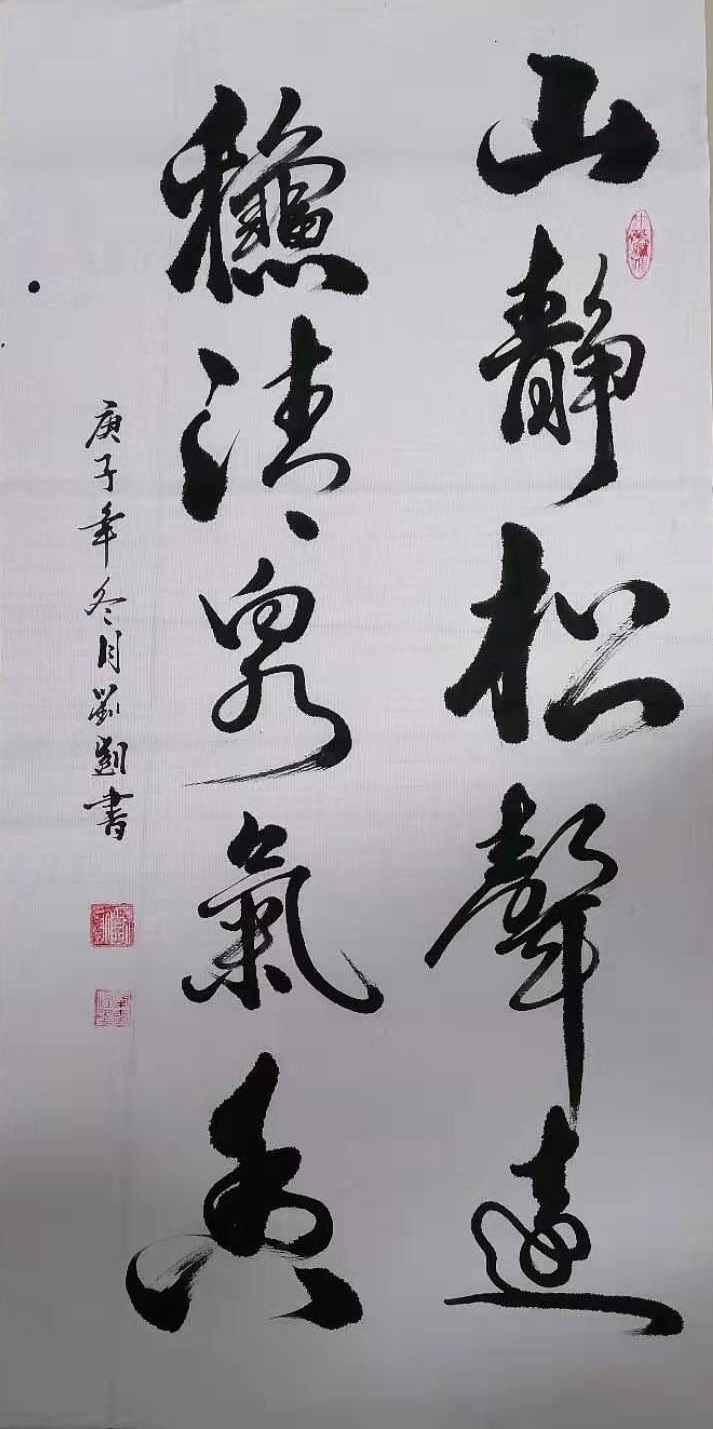 山靜松聲遠
龝清泉氣香
庚子年冬月書